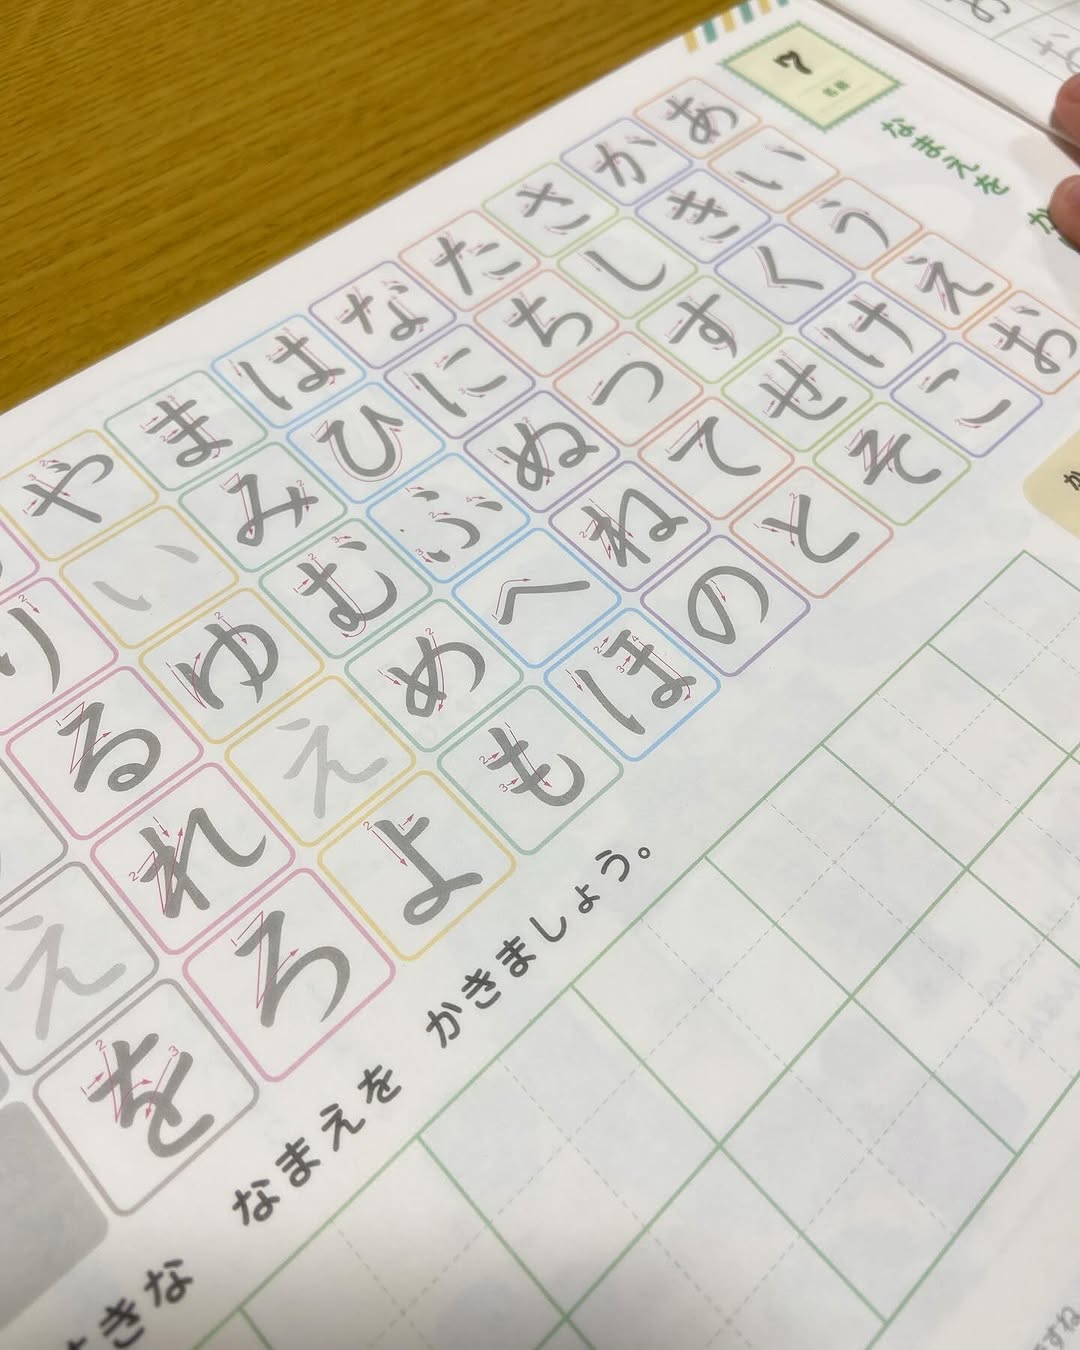 7
名前
なまえを か
あいうえお
かきくけこ
さしすせそ
たちつてと
なにぬねの
はひふへほ
まみむめも
やいゆえよ
りるれろ
えを
なまえを かきましょう。
きな